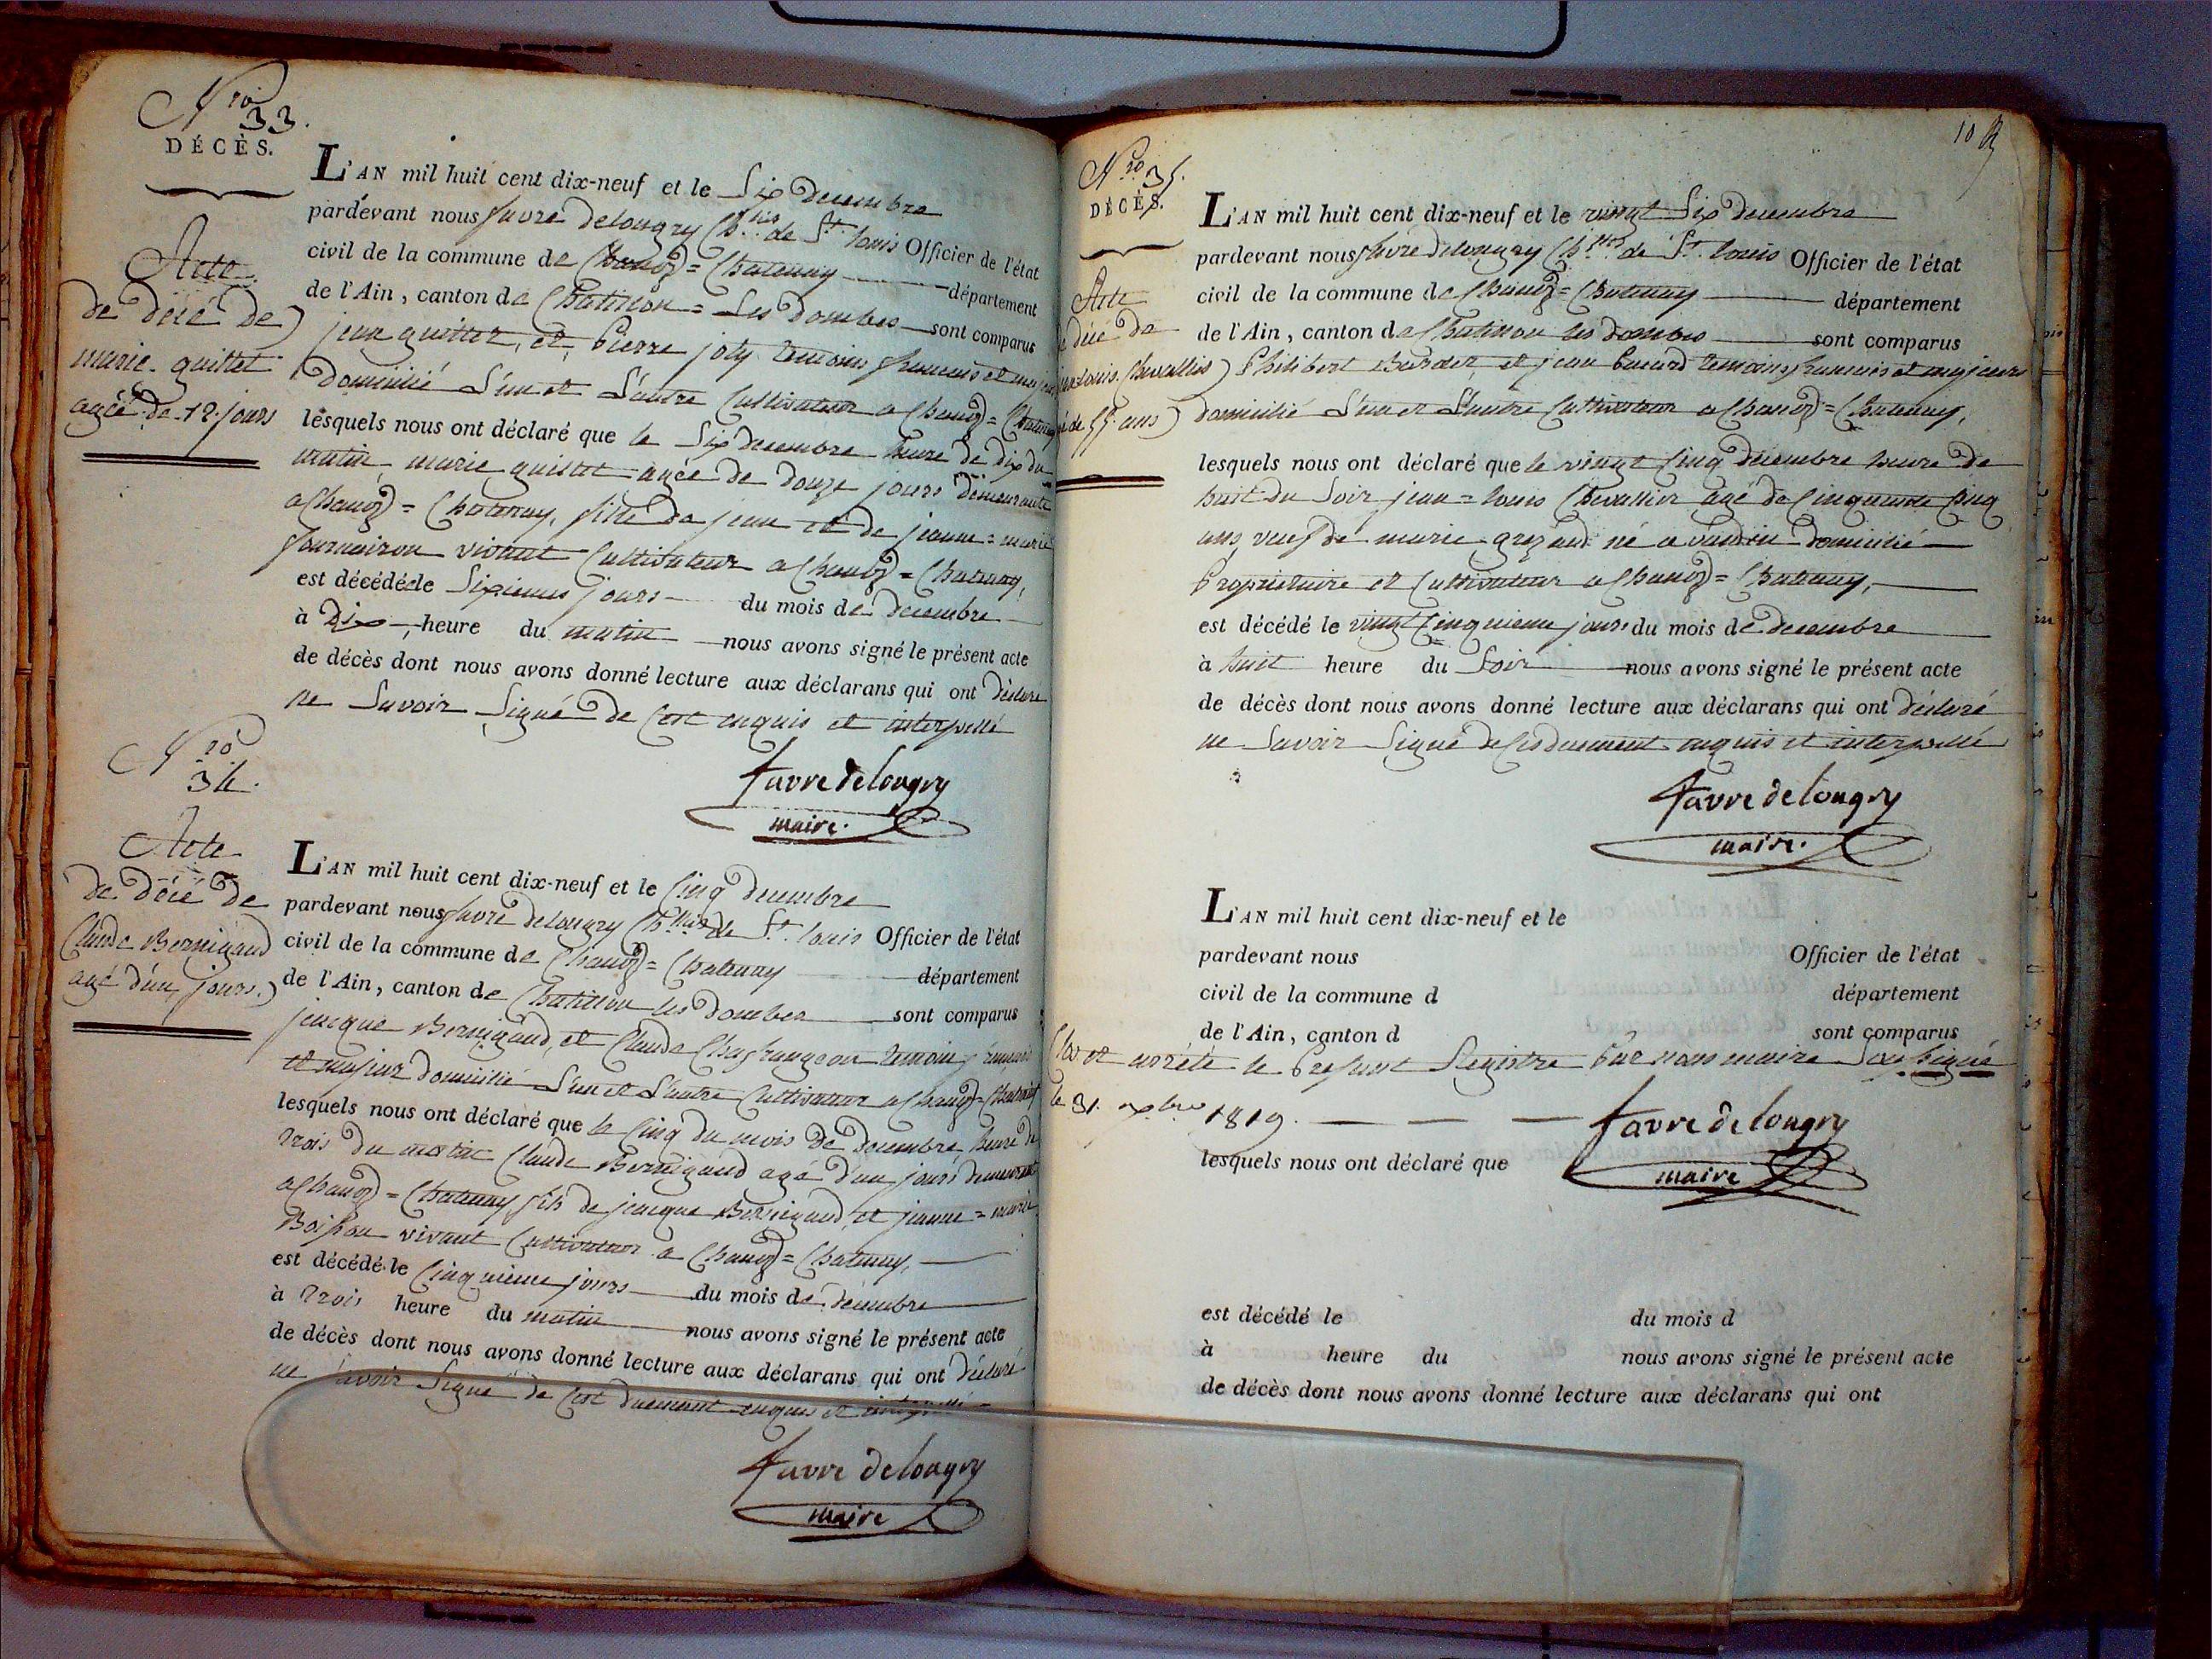 Nro 33.
DÉCÈS.
Acte
de décé de
marie guillet
agée de 12 jours
L'AN mil huit cent dix-neuf et le Six decembre
pardevant nous favre delongry Ch.lier de St. louis Officier de l'état
civil de la commune de Chanoz=Chatenay département
de l'Ain, canton de Chatillon=Les dombes sont comparus
jean guillet, et Pierre joly temoins francais et majeurs
domicilié L'un et L'autre Cultivateur a Chanoz=Chatenay
lesquels nous ont déclaré que le Six decembre heure de dix du
matin marie guillet agée de douze jours demeurante
a Chanoz=Chatenay, fille de jean et de jeanne=marie
vivant Cultivateur a Chanoz=Chatenay,
est décédée le Sixieme jours du mois de decembre
à Dix heure du matin nous avons signé le présent acte
de décès dont nous avons donné lecture aux déclarans qui ont déclaré
ne Savoir Signé de Cest enquis et interpellé
favre delongry
maire.
Nro 34.
Acte
de décé de
Claude Bernigaud
agé d'un jours.
L'AN mil huit cent dix-neuf et le Cinq decembre
pardevant nous favre delongry Ch.lier de St. louis Officier de l'état
civil de la commune de Chanoz=Chatenay département
de l'Ain, canton de Chatillon les dombes sont comparus
jacque Bernigaud, et Claude Chaffrangeon temoins francais
et majeur domicilié L'un et L'autre Cultivateur a Chanoz=Chatenay
lesquels nous ont déclaré que le Cinq du mois de decembre, heure de
trois du matin Claude Bernigaud agé d'un jours demeurant
a Chanoz=Chatenay fils de jacque Bernigaud, et jeanne=marie
Boisson vivant Cultivateur a Chanoz=Chatenay,
est décédé le Cinquieme jours du mois de decembre
à trois heure du matin nous avons signé le présent acte
de décès dont nous avons donné lecture aux déclarans qui ont déclaré
ne Savoir Signé de Cest duement enquis et interpellé
favre delongry
maire
10
Nro 35.
DÉCÈS.
Acte
de décé de
jean louis Chevallier
agé de 55 ans
L'AN mil huit cent dix-neuf et le vingt Six decembre
pardevant nous favre delongry Ch.lier de St. louis Officier de l'état
civil de la commune de Chanoz=Chatenay département
de l'Ain, canton de Chatillon les dombes sont comparus
Philibert Burdet, et jean temoins francais et majeurs
domicilié L'un et L'autre Cultivateur a Chanoz=Chatenay,
lesquels nous ont déclaré que le vingt Cinq decembre heure de
huit du Soir jean=louis Chevallier agé de Cinquante Cinq
ans, veuf de marie né a domicilié
Proprietaire et Cultivateur a Chanoz=Chatenay,
est décédé le vingt Cinquieme jours du mois de decembre
à huit heure du Soir nous avons signé le présent acte
de décès dont nous avons donné lecture aux déclarans qui ont déclaré
ne Savoir Signé de Ces duement enquis et interpellé
favre delongry
maire.
L'AN mil huit cent dix-neuf et le
pardevant nous Officier de l'état
civil de la commune d département
de l'Ain, canton d sont comparus
Clos et arrété le Present Registre Par nous maire Sousigné
le 31. xbre 1819.
favre delongry
maire
lesquels nous ont déclaré que
est décédé le du mois d
à heure du nous avons signé le présent acte
de décès dont nous avons donné lecture aux déclarans qui ont